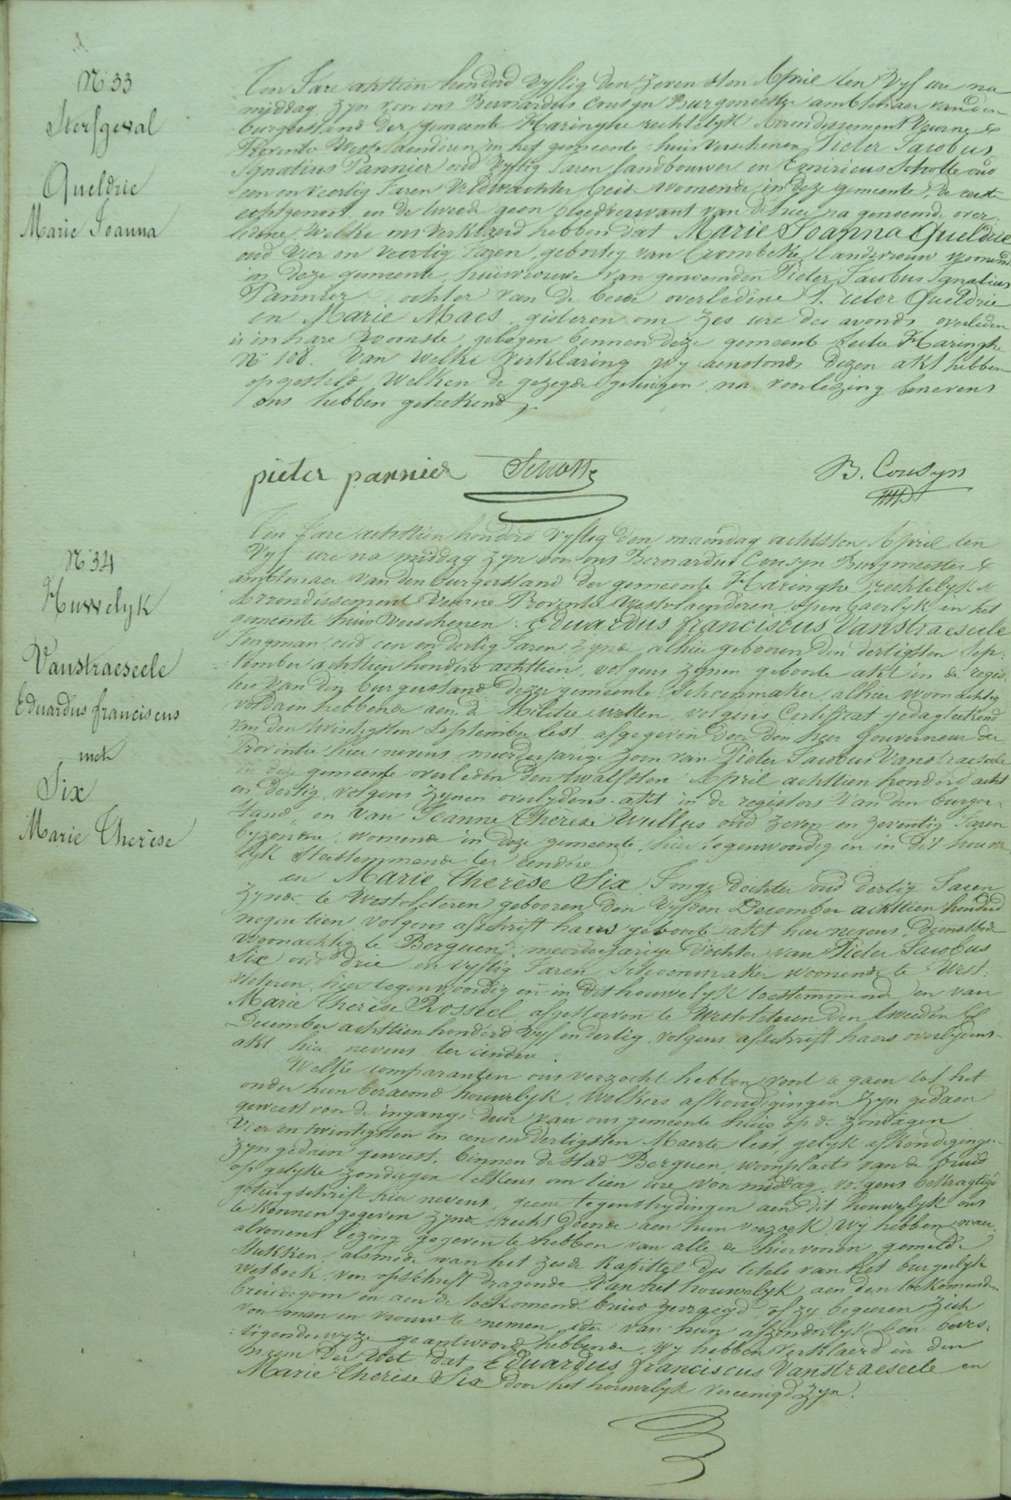 N 33
Sterfgeval
Queldrie
Marie Joanna
Ten Jare achttien honderd vyftig den zevensten April ten Vyf ure na
middag zyn von ons Bernardus Cousyn Burgmeester ambtenaer van den
burgerstand der gemeente Haringhe rechtelyk Arrondissement Veurne
Provintie Westvlaenderen, in het gemeente huis verschenen Pieter Jacobus
Ignatius Pannier oud vyftig Jaren landbouwer en Emericus Schotte oud
een en veertig Jaren Veldwachter beide woonende in deze gemeente, de eerste
echtgenoot en de tweede geen bloedverwant van de hier na genoemde over-
ledene, welke ons verklaerd hebben dat Marie Joanna Queldrie
oud vier en veertig Jaren, geboortig van Crombeke, landsvrouw woonende
in deze gemeente, huisvrouwe van genoemden Pieter Jacobus Ignatius
Pannier, dochter van de beide overledene Pieter Queldrie
en Marie Maes, gisteren om zes ure des avonds, overleden
is in hare Woonste, gelegen binnen deze gemeente sectie Haringhe
N 108. Van welke verklaring wy aenstonds dezen akt hebben
opgesteld, welken de gezegde getuigen na voorlezing benevens
ons hebben geteekend.
pieter pannier Schotte B. Cousyn
N 34
Huwelyk
Vanstraeseele
Eduardus franciscus
met
Six
Marie Therèse
Ten Jare achttien honderd vyftig den maendag achtsten April ten
Vyf ure na middag zyn von ons Bernardus Cousyn Burgmeester &
ambtenaer van den burgerstand der gemeente Haringhe rechtelyk
Arrondissement Veurne Provintie Westvlaenderen, openbaerlyk in het
gemeente huis verschenen Eduardus franciscus Vanstraeseele
Jongman oud een en dertig Jaren zynde, alhier gebooren den dertigsten Sep-
tember achttien honderd achttien, volgens zynen geboorte akt in de regis-
ters van den burgerstand dezer gemeente, Schoenmaker, alhier woonachtig
voldaen hebbende aen de Militie wetten, volgens Certificat gedagteekend
van den twintigsten September lest, afgegeven door den heer Gouverneur der
Provintie hier nevens, meerderjarige zoon van Pieter Jacobus Vanstraeseele
in deze gemeente overleden den twalfsten April achttien honderd acht
en dertig, volgens zynen overlydens akt in de registers van den burger-
stand, en van Jeanne Therese Willus oud zeven en zeventig Jaren
byzondere, woonende in deze gemeente, hier tegenwoordig en in dit huwe-
lyk toestemmende ter eendre
en Marie Therèse Six, Jonge dochter oud dertig Jaren
zynde, te Westvleteren gebooren den vyfden December achttien honderd
negentien, volgens afschrift haers geboorte akt hier nevens, Dienstmeid
woonachtig te Berguen, meerderjarige dochter van Pieter Jacobus
Six oud drie en vyftig Jaren, Schoenmaker woonende te West-
vleteren, hier tegenwoordig en in dit houwelyk toestemmende en van
Marie Therèse Rosseel, afgestorven te Westvleteren den tweeden
December achttien honderd vyf en dertig, volgens afschrift haers overlydens
akt hier nevens ter eendre.
Welke comparanten ons verzocht hebben voort te gaen tot het
onder hun beraemd houwelyk, Welkers afkondigingen zyn gedaen
geweest von de ingangs deur van ons gemeente huis op de zondagen
vier en twintigsten en een en dertigsten Maerte lest, gelyk afkondigingen
zyn gedaen geweest binnen de stad Berguen, woonplaets van de bruid
op gelyke zondagen telkens om tien ure von middag, volgens
getuigschrift hier nevens, geene tegenstrydingen aen dit houwelyk ons
te kennen gegeven zynde, recht doende aen hun verzoek, Wy hebben van
alvorens lezing gegeven te hebben van alle de hiervoren gemelde
stukken, alsmede van het zesde kapittel des titels van het burgerlyk
wetboek, von opschrift dragende van het houwelyk, aen den toekomende
bruidegom en aen de toekomende bruid gevraegd, of zy begeeren zich
voor man en vrouw te nemen, ider van hun afzonderlyk een beves-
tigende wyze geantwoord hebbende, wy hebben verklaerd in den
naem der Wet dat Eduardus franciscus Vanstraeseele en
Marie Therèse Six door het houwelyk vereenigd zyn.